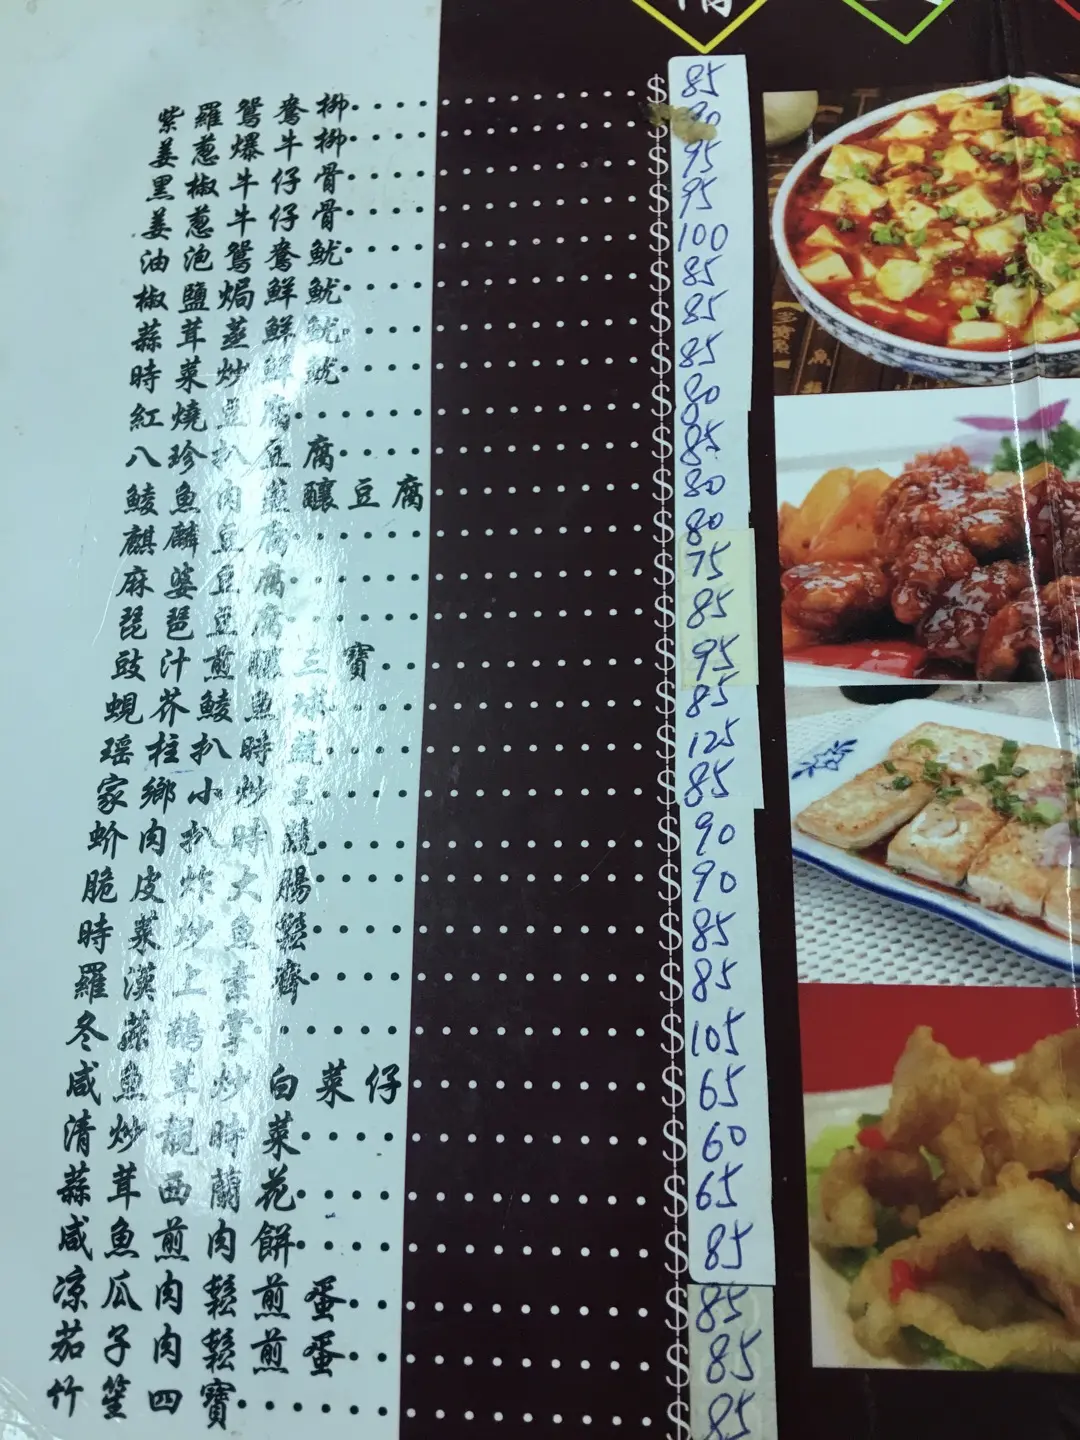 紫羅鴛鴦柳 $85
姜蔥爆牛柳 $90
黑椒牛仔骨 $95
姜蔥牛仔骨 $95
油泡鴛鴦魷 $100
椒鹽焗鮮魷 $85
蒜茸蒸鮮魷 $85
時菜炒鮮魷 $85
紅燒豆腐 $80
八珍扒豆腐 $85
鯪魚肉煎釀豆腐 $80
麒麟豆腐 $80
麻婆豆腐 $75
琵琶豆腐 $85
豉汁煎釀三寶 $95
蜆芥鯪魚球 $85
瑶柱扒時蔬 $125
家鄉小炒王 $85
蚧肉扒時蔬 $90
脆皮炸大腸 $90
時菜炒魚鬆 $85
羅漢上素齋 $85
冬菰鵝掌 $105
咸魚茸炒白菜仔 $65
清炒靚時菜 $60
蒜茸西蘭花 $65
咸魚煎肉餅 $85
涼瓜肉鬆煎蛋 $85
茄子肉鬆煎蛋 $85
竹笙四寶 $85